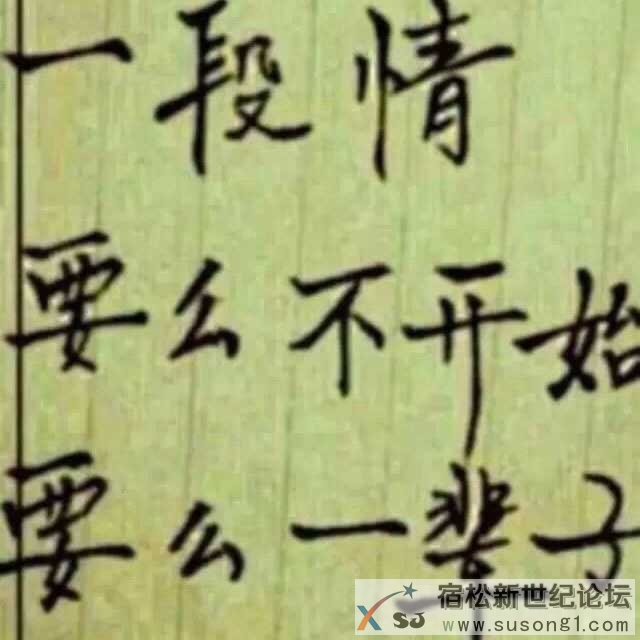 一段情
要么不开始
要么一辈子
XSJ
宿松新世纪论坛
www.susong1.com